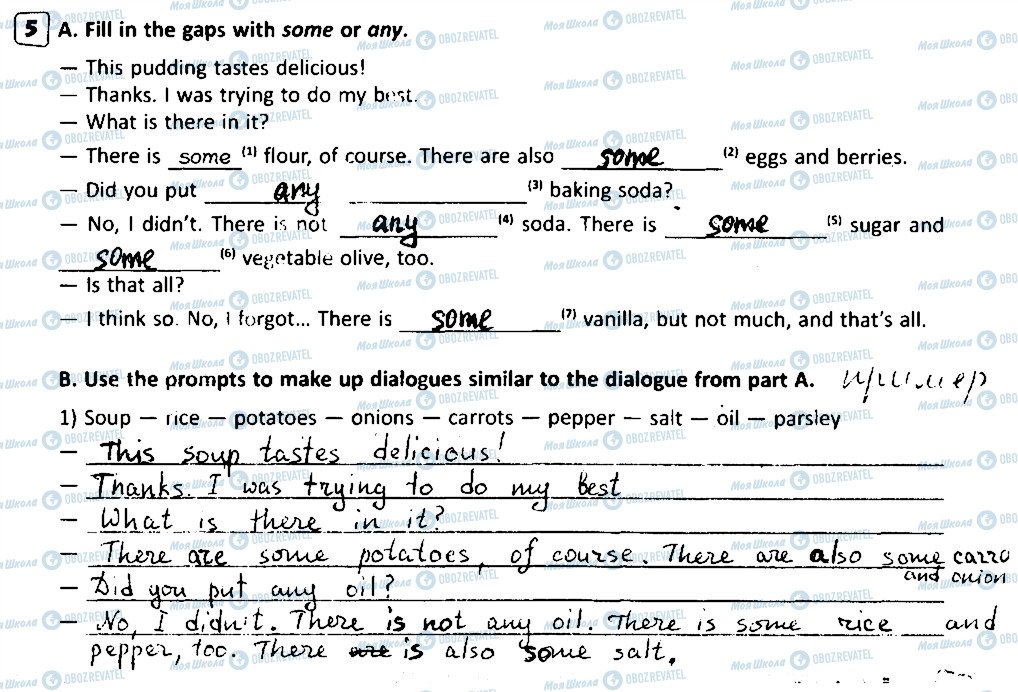 5 A. Fill in the gaps with some or any.
— This pudding tastes delicious!
— Thanks. I was trying to do my best.
— What is there in it?
— There is some (1) flour, of course. There are also some (2) eggs and berries.
— Did you put any (3) baking soda?
— No, I didn't. There is not any (4) soda. There is some (5) sugar and
some (6) vegetable olive, too.
— Is that all?
— I think so. No, I forgot... There is some (7) vanilla, but not much, and that's all.
B. Use the prompts to make up dialogues similar to the dialogue from part A. пример
1) Soup — rice — potatoes — onions — carrots — pepper — salt — oil — parsley
— This soup tastes delicious!
— Thanks. I was trying to do my best
— What is there in it?
— There are some potatoes, of course. There are also some carro
and onion
— Did you put any oil?
— No, I didn't. There is not any oil. There is some rice and
pepper, too. There are is also some salt.
Моя Школа OBOZREVATEL